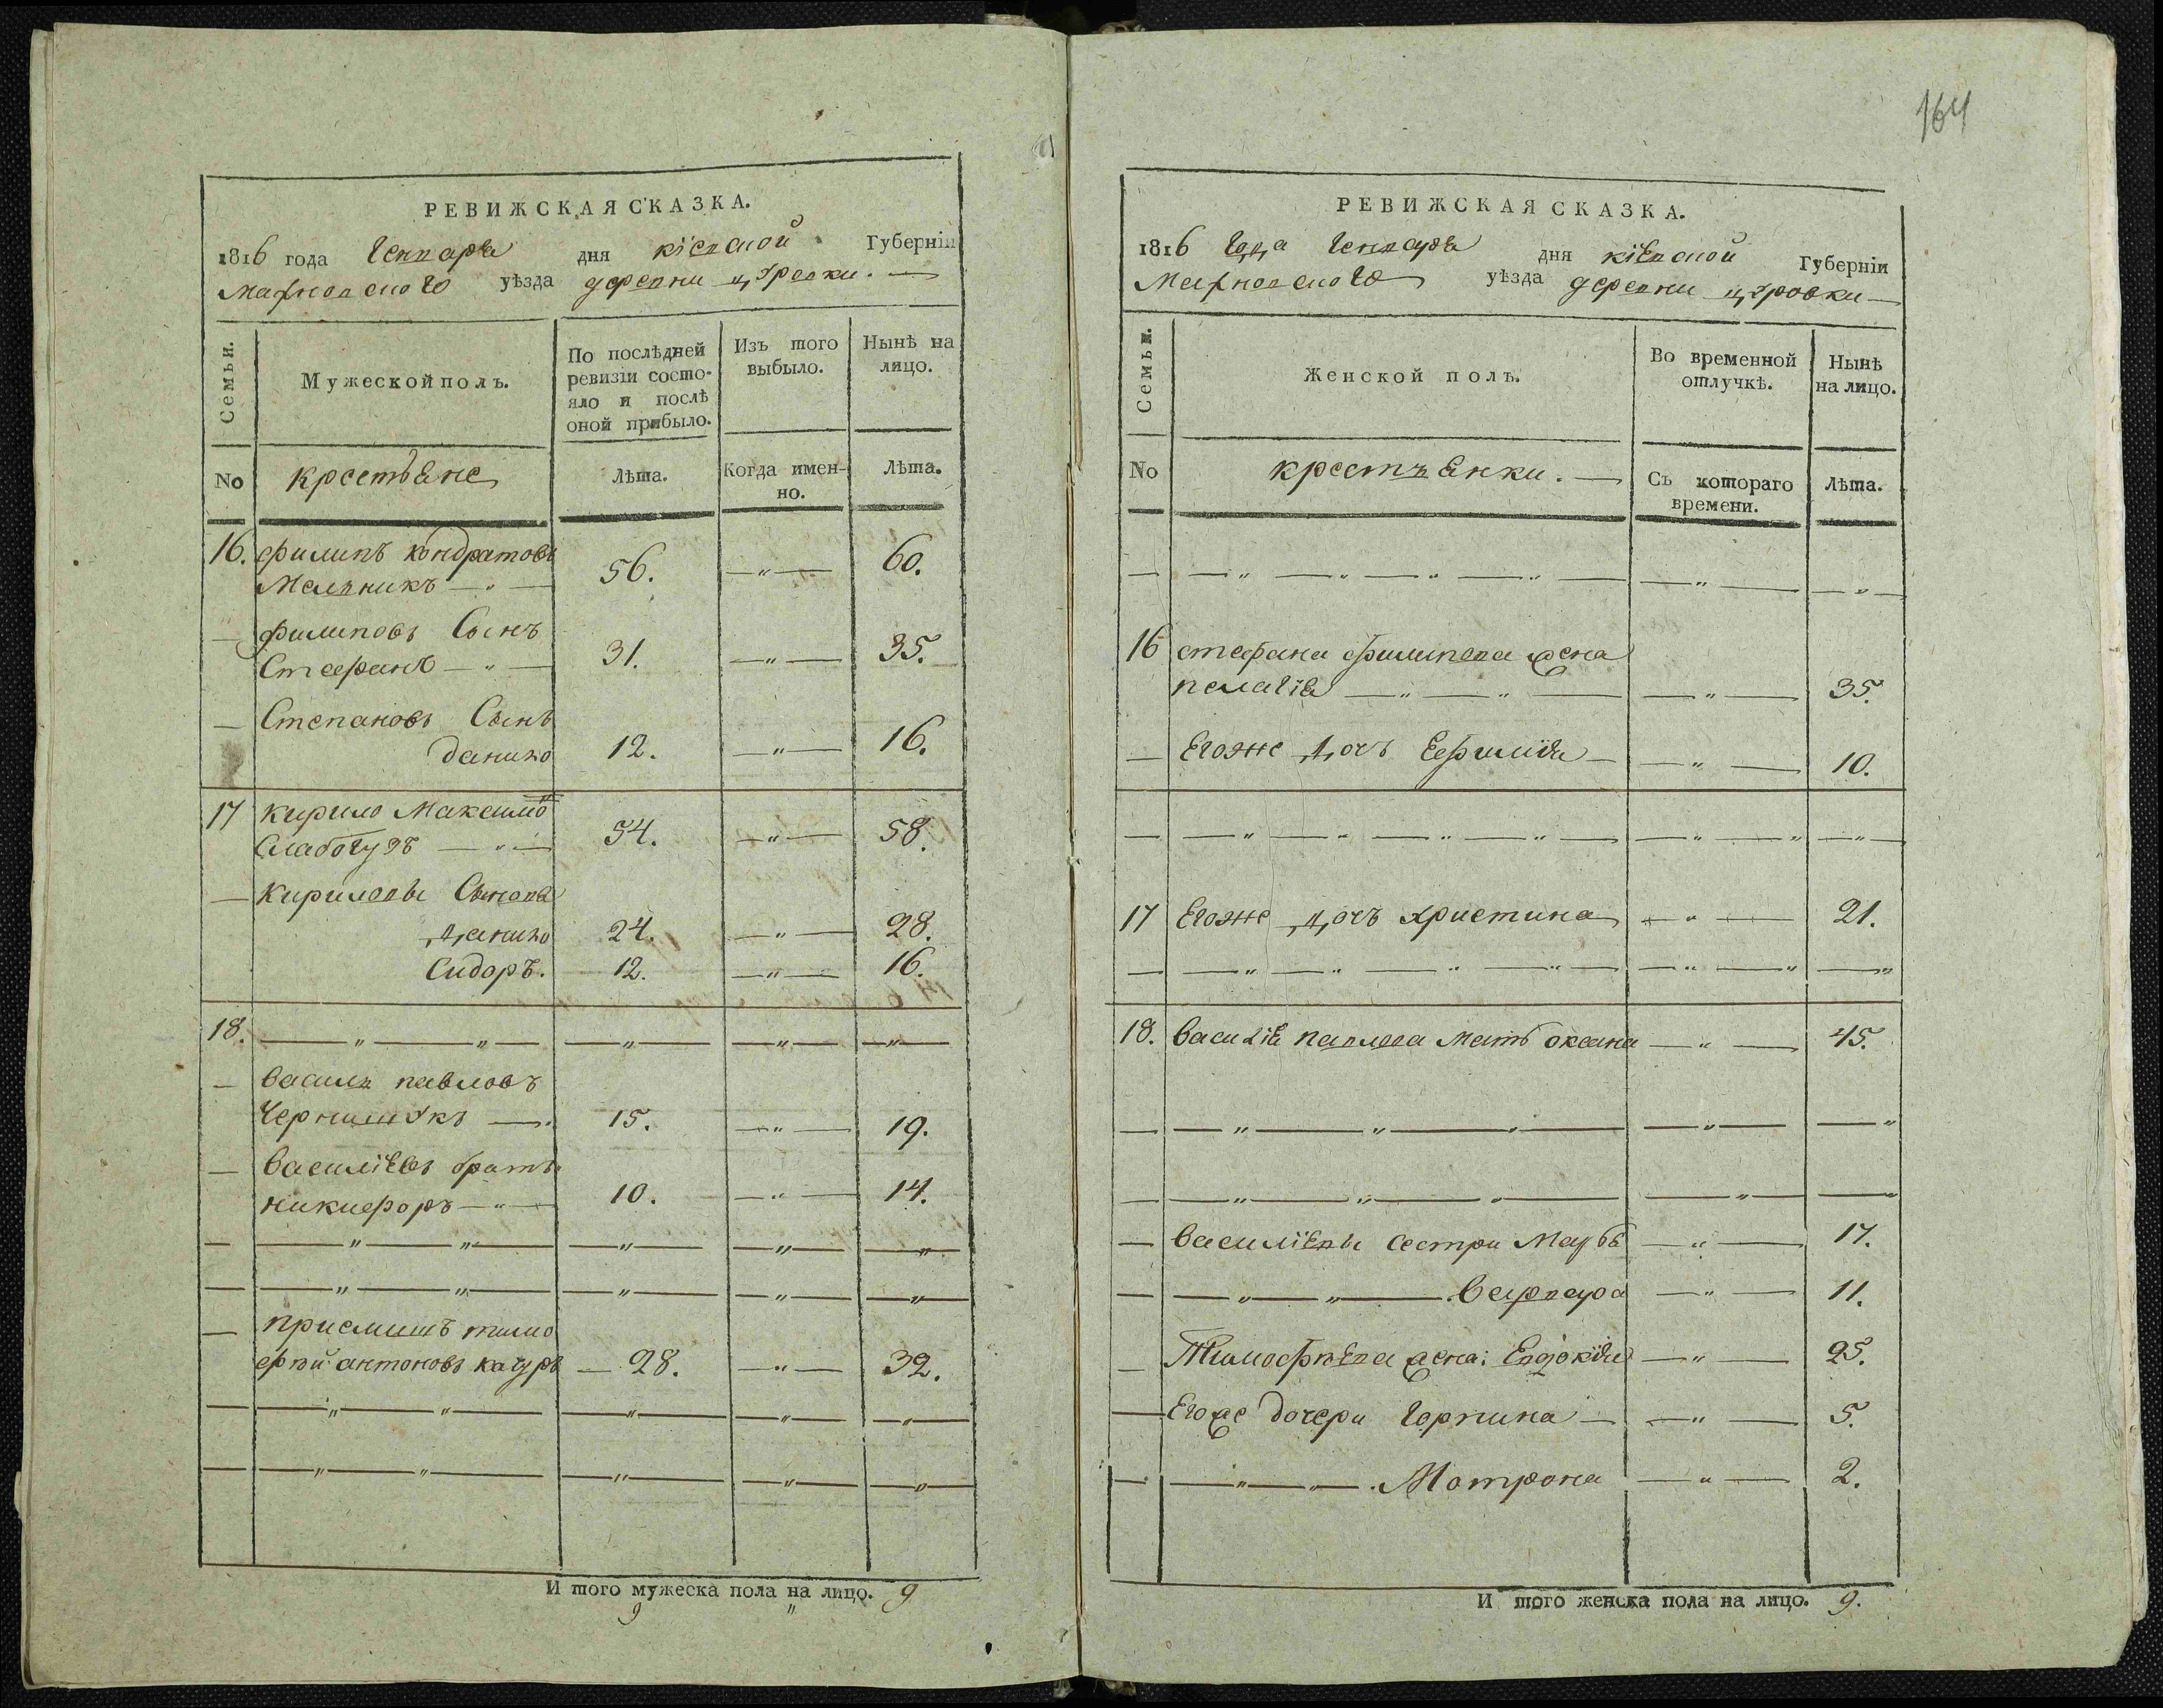 164
РЕВИЖСКАЯ СКАЗКА.
1816 года Генваря дня кіевской Губерніи
Махновского уѣзда деревни
Семьи.
Мужеской полъ.
По послѣдней ревизіи состояло и послѣ оной прибыло.
Изъ того выбыло.
Нынѣ на лицо.
No
крестьяне
Лѣта.
Когда именно.
Лѣта.
16. филипъ кондратовъ
Мельникъ — „ — 56. — „ — 60.
— филиповъ Сынъ
Стефанъ — „ — 31. — „ — 35.
— Степановъ Сынъ
данило 12. — „ — 16.
17 кирило Максимо
54. — „ — 58.
— кириловы Сыновя
данило 24. — „ — 28.
Сидоръ. 12. — „ — 16.
18. — „ — „ — — „ — — „ — — „ —
— василь павловъ
15. — „ — 19.
— василіевъ братъ
никифоръ — „ — 10. — „ — 14.
— — „ — „ — — „ — — „ — — „
— — „ — „ — — „ — — „ — — „ —
— приемышъ тимо
фѣй антоновъ — 28. — „ — 32.
— — „ — „ — — „ — — „ — — „ —
— — „ — „ — — „ — — „ — — „ —
И того мужеска пола на лицо. 9
9 „
РЕВИЖСКАЯ СКАЗКА.
1816 года Генваря дня кіевской Губерніи
Махновского уѣзда деревни
Семьи.
Женской полъ.
Во временной отлучкѣ.
Нынѣ на лицо.
No
крестьянки. —
Съ котораго времени.
Лѣта.
— — „ — „ — „ — „ — — „ — — „ —
16 стефана филипова жена
пелагія — „ — „ — — „ — 35.
— Егоже дочъ Ефимія — — „ — 10.
— — „ — „ — „ — „ — — „ — „ — „ —
17 Егоже дочъ христина — „ — 21.
— — „ — „ — „ — „ — — „ — „ — „
18. василія павлова мать оксана — „ — 45.
— — „ — „ — „ — — „ — — „
— — „ — „ — „ — — „ — — „
— василіевы сестри Марья — „ — 17.
— — „ — „ — варвара — „ — 11.
— Тимофѣева жена: Евдокія — „ — 25.
— Егоже дочери Горпина — — „ — 5.
— — „ — „ — . Мотрона — „ — 2.
И того женска пола на лицо. 9.